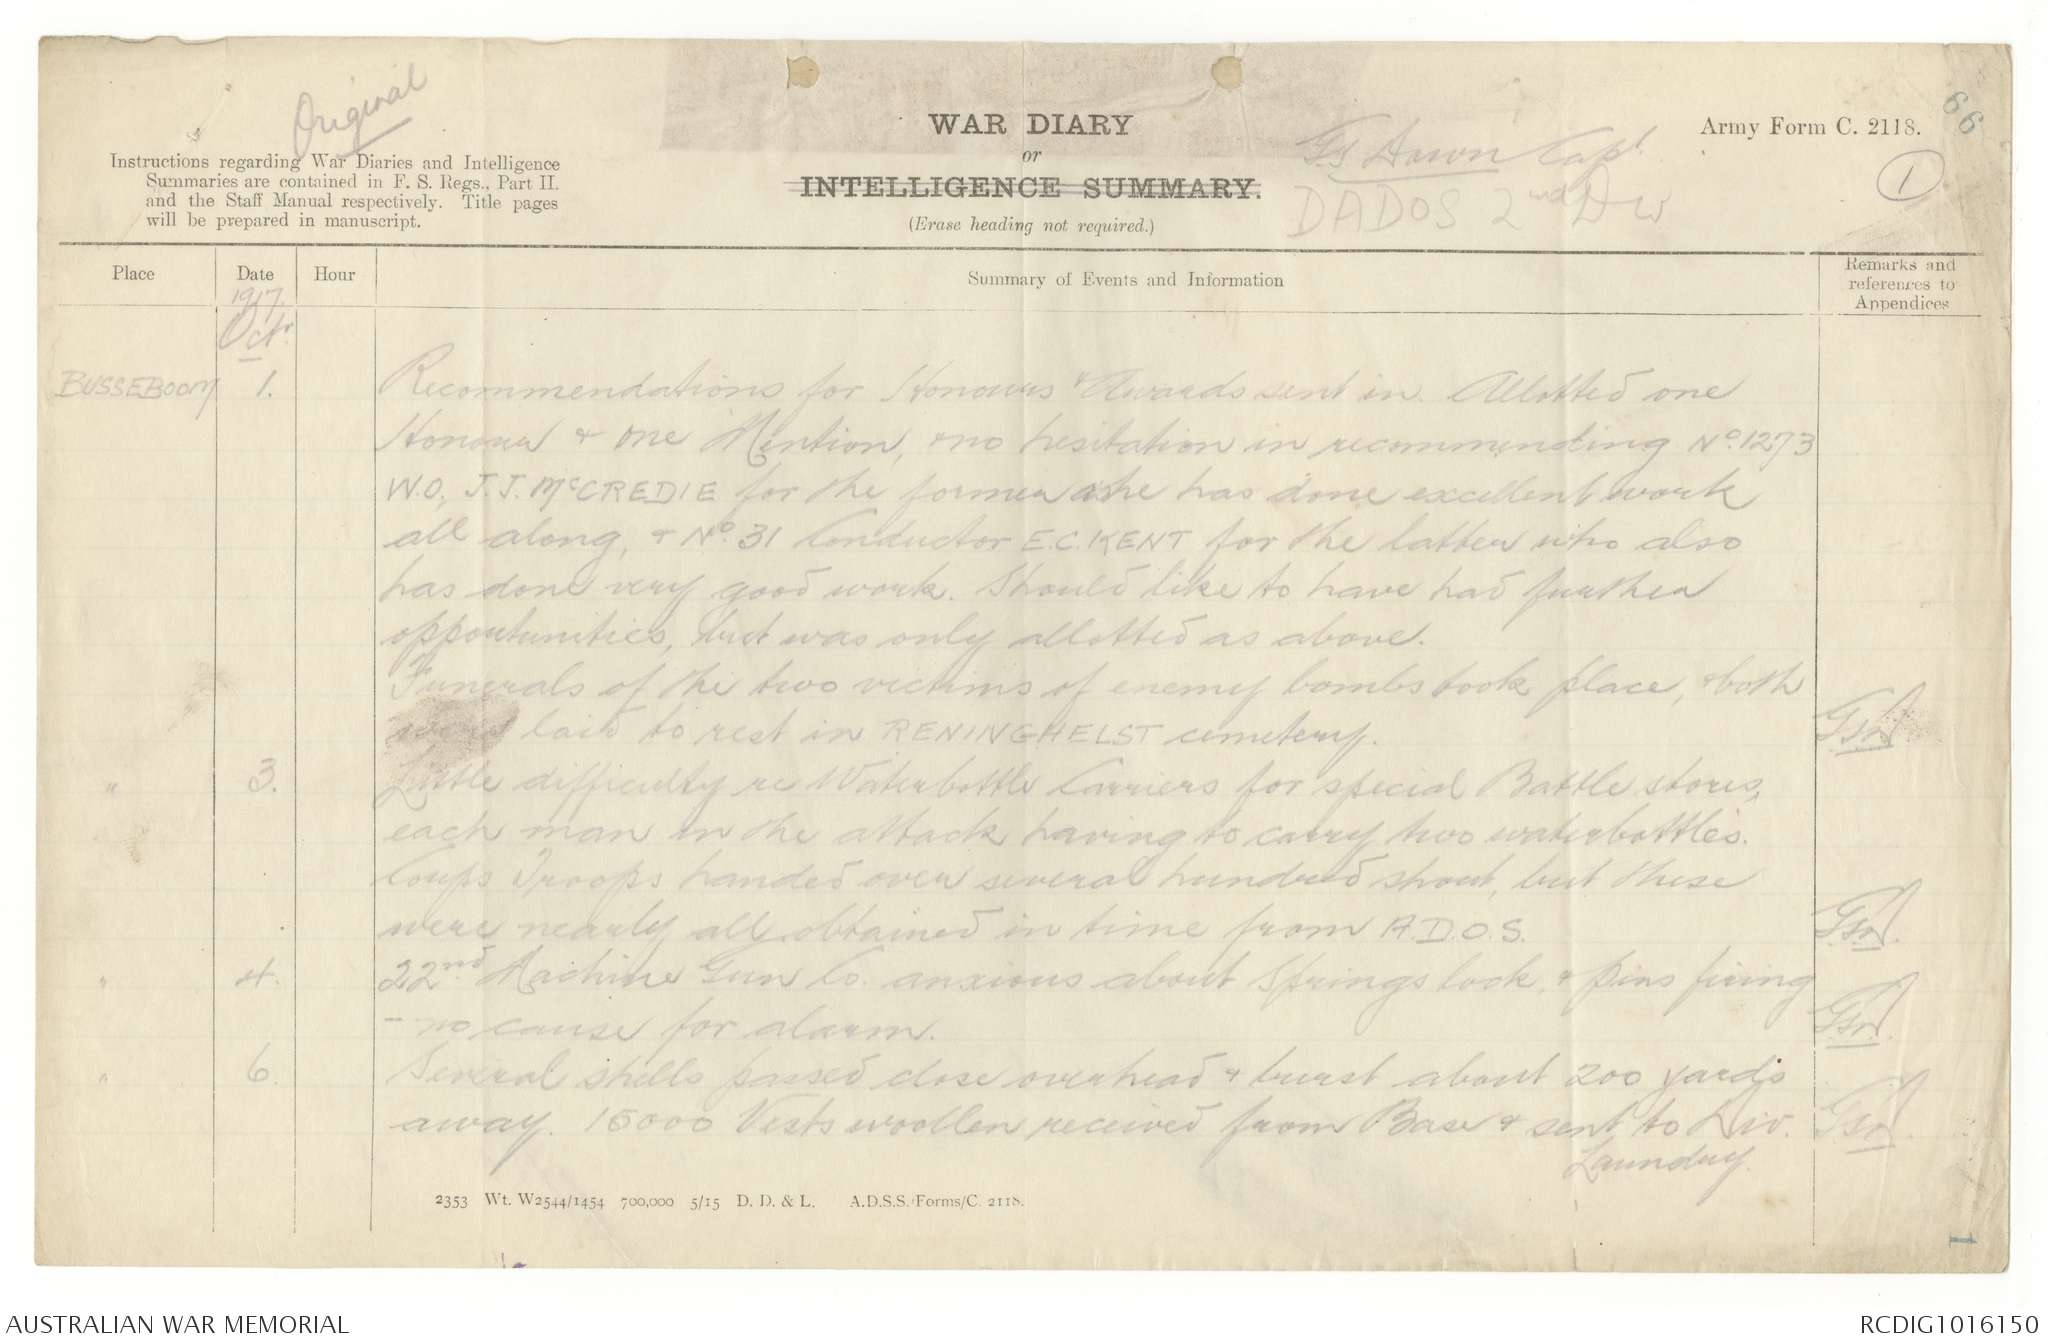 Original
Army Form C. 2118.
66
1
WAR DIARY
or
INTELLIGENCE SUMMARY.
(Erase heading not required.)
Instructions regarding War Diaries and Intelligence
Summaries are contained in F. S. Regs., Part II.
and the Staff Manual respectively. Title pages
will be prepared in manuscript.
Capt.
DADOS 2nd Div
Place Date Hour Summary of Events and Information Remarks and
references to
Appendices
1917.
Octr.
BUSSEBOOM 1. Recommendations for Honours & Awards sent in. Allotted one
Honour & one Mention, & no hesitation in recommending No. 1273
W.O. J.J. McCREDIE for the former as he has done excellent work
all along, & No. 31 Conductor E.C. KENT for the latter who also
has done very good work. Should like to have had further
opportunities, but was only allotted as above.
Funerals of the two victims of enemy bombs took place, & both
were laid to rest in RENINGHELST cemetery.
" 3. Little difficulty re Waterbottle Carriers for special Battle stores,
each man in the attack having to carry two waterbottles.
Corps Troops handed over several hundred short, but these
were nearly all obtained in time from A.D.O.S.
" 4. 22nd Machine Gun Co. anxious about Springs lock, & pins firing
- no cause for alarm.
" 6. Several shells passed close overhead & burst about 200 yards
away. 15000 Vests woollen received from Base & sent to Div.
Laundry.
2353 Wt. W2544/1454 700,000 5/15 D. D. & L. A.D.S.S./Forms/C. 2118.
1
AUSTRALIAN WAR MEMORIAL
RCDIG1016150